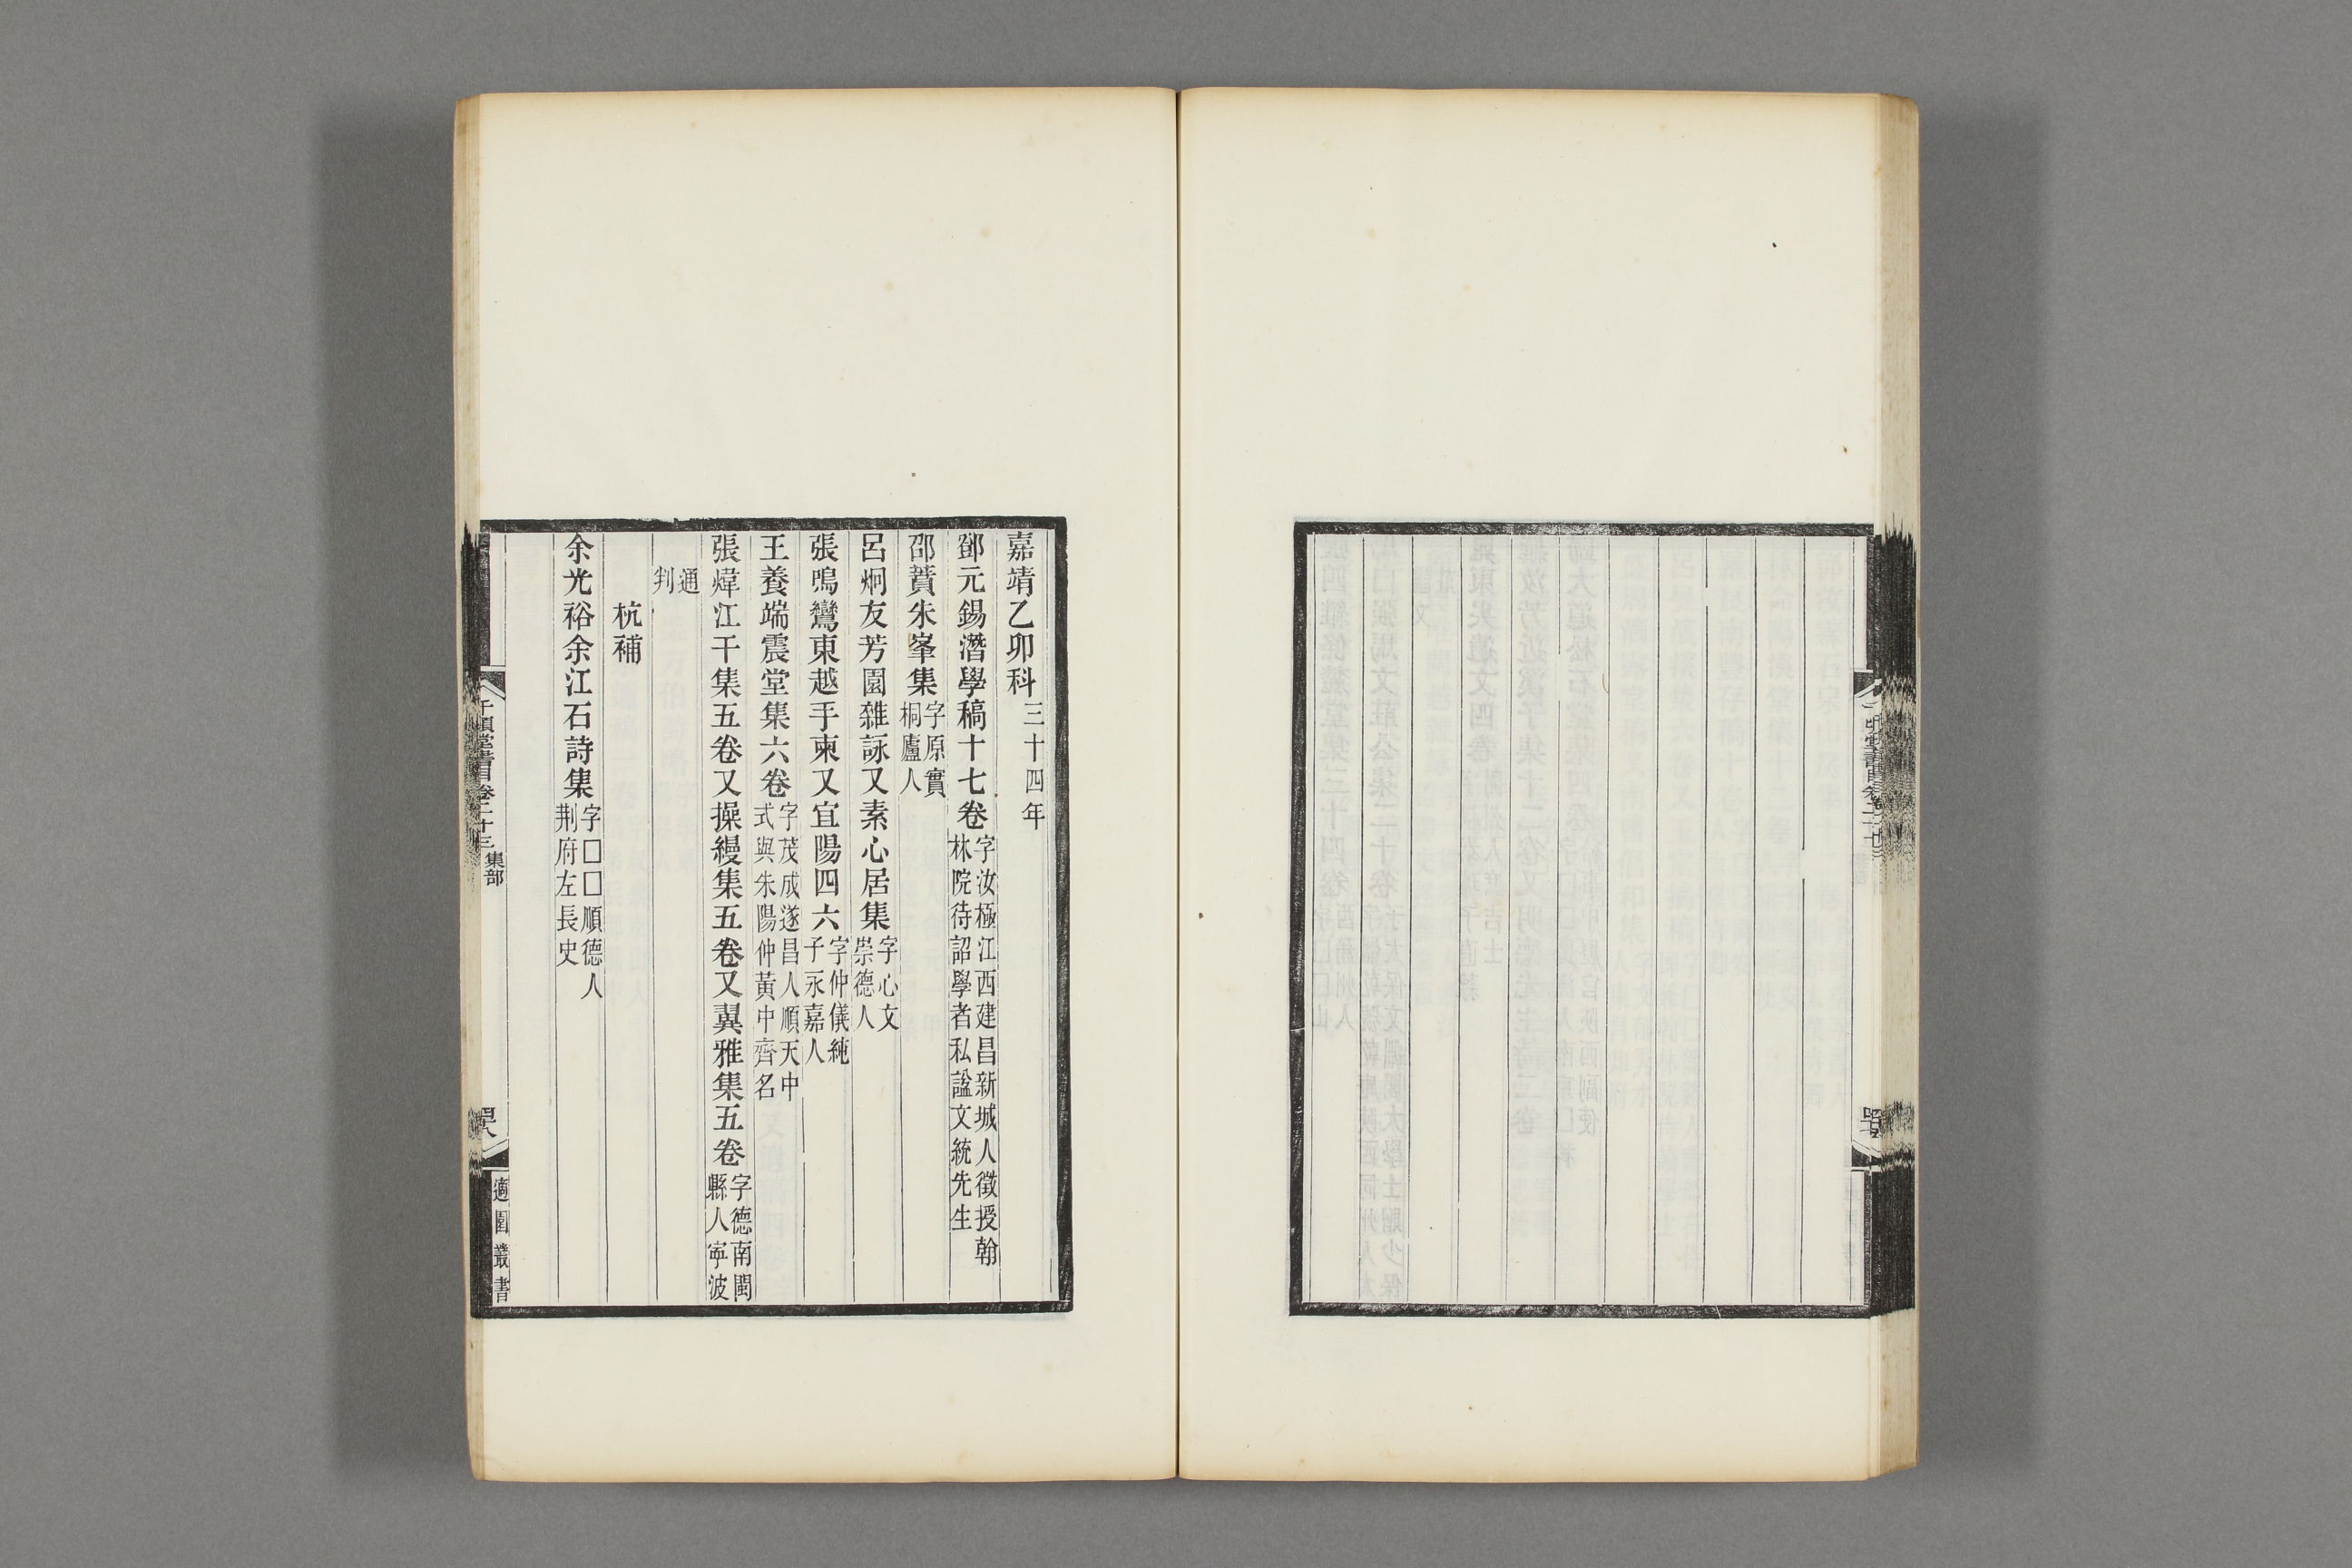 嘉靖乙卯科三十四年
鄧元錫潛學稿十七卷字汝極江西建昌新城人徵授翰林院待詔學者私諡文統先生
邵蕡朱峯集字原實桐廬人
呂炯友芳園雜詠又素心居集字心文崇德人
張鳴鸞東越手柬又宜陽四六字仲儀純子永嘉人
王養端震堂集六卷字茂成遂昌人順天中式與朱陽仲黃中齊名
張煒江干集五卷又操縵集五卷又翼雅集五卷字德南閩縣人寧波
通判
杭補
余光裕余江石詩集字□□順德人荆府左長史
千頃堂書目卷二十三 集部
適園叢書